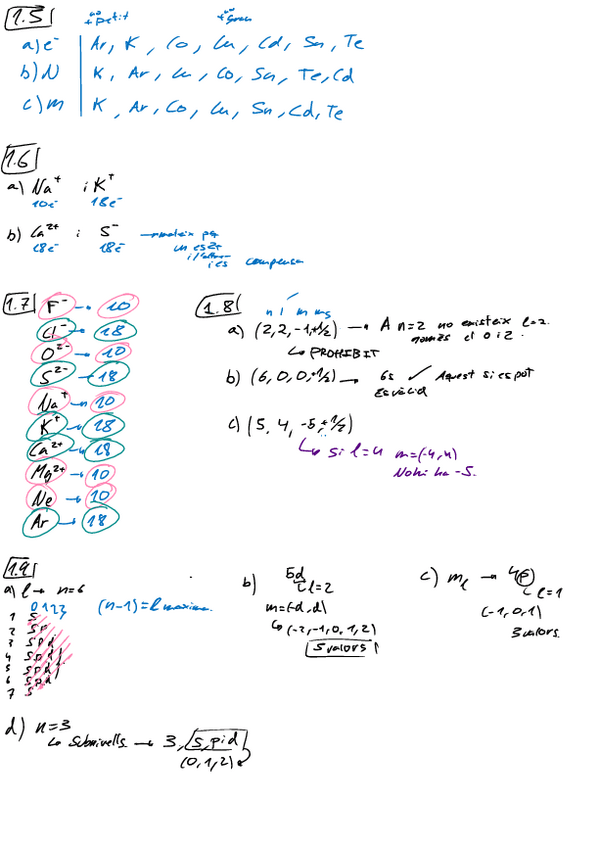 1.5
+ petit + gran
a) e⁻ Ar, K, Co, Cu, Cd, Sn, Te
b) N K, Ar, Cu, Co, Sn, Te, Cd
c) m K, Ar, Co, Cu, Sn, Cd, Te
1.6
a) Na⁺ i K⁺
10e⁻ 18e⁻
b) Ca²⁺ i S⁻
18e⁻ 18e⁻
un és 2+
i és compensa
1.7
F⁻ → 10
Cl⁻ → 18
O²⁻ → 10
S²⁻ → 18
Na⁺ → 10
K⁺ → 18
Ca²⁺ → 18
Mg²⁺ → 10
Ne → 10
Ar → 18
1.8
n l m ms
a) (2,2,-1,+1/2) → A n=2 no existeix l=2.
només el 0 i 2.
↳ PROHIBIT
b) (6,0,0,+1/2) → 6s ✓ Aquest si es pot
És vàlid
c) (5, 4, -5, +1/2)
↳ si l=4 m=(-4,4)
No hi ha -5.
1.9
a) l → n=6
0 1 2 3 (n-1)=l màxima.
1 s
2 s p
3 s p d
4 s p d f
5 s p d f
6 s p d
7 s
b) 5d
l=2
m=(-l, l)
↳ (-2,-1,0,1,2)
5 valors
c) mₗ → 4p
l=1
(-1,0,1)
3 valors.
d) n=3
↳ Subnivells → 3, s, p i d
(0,1,2)